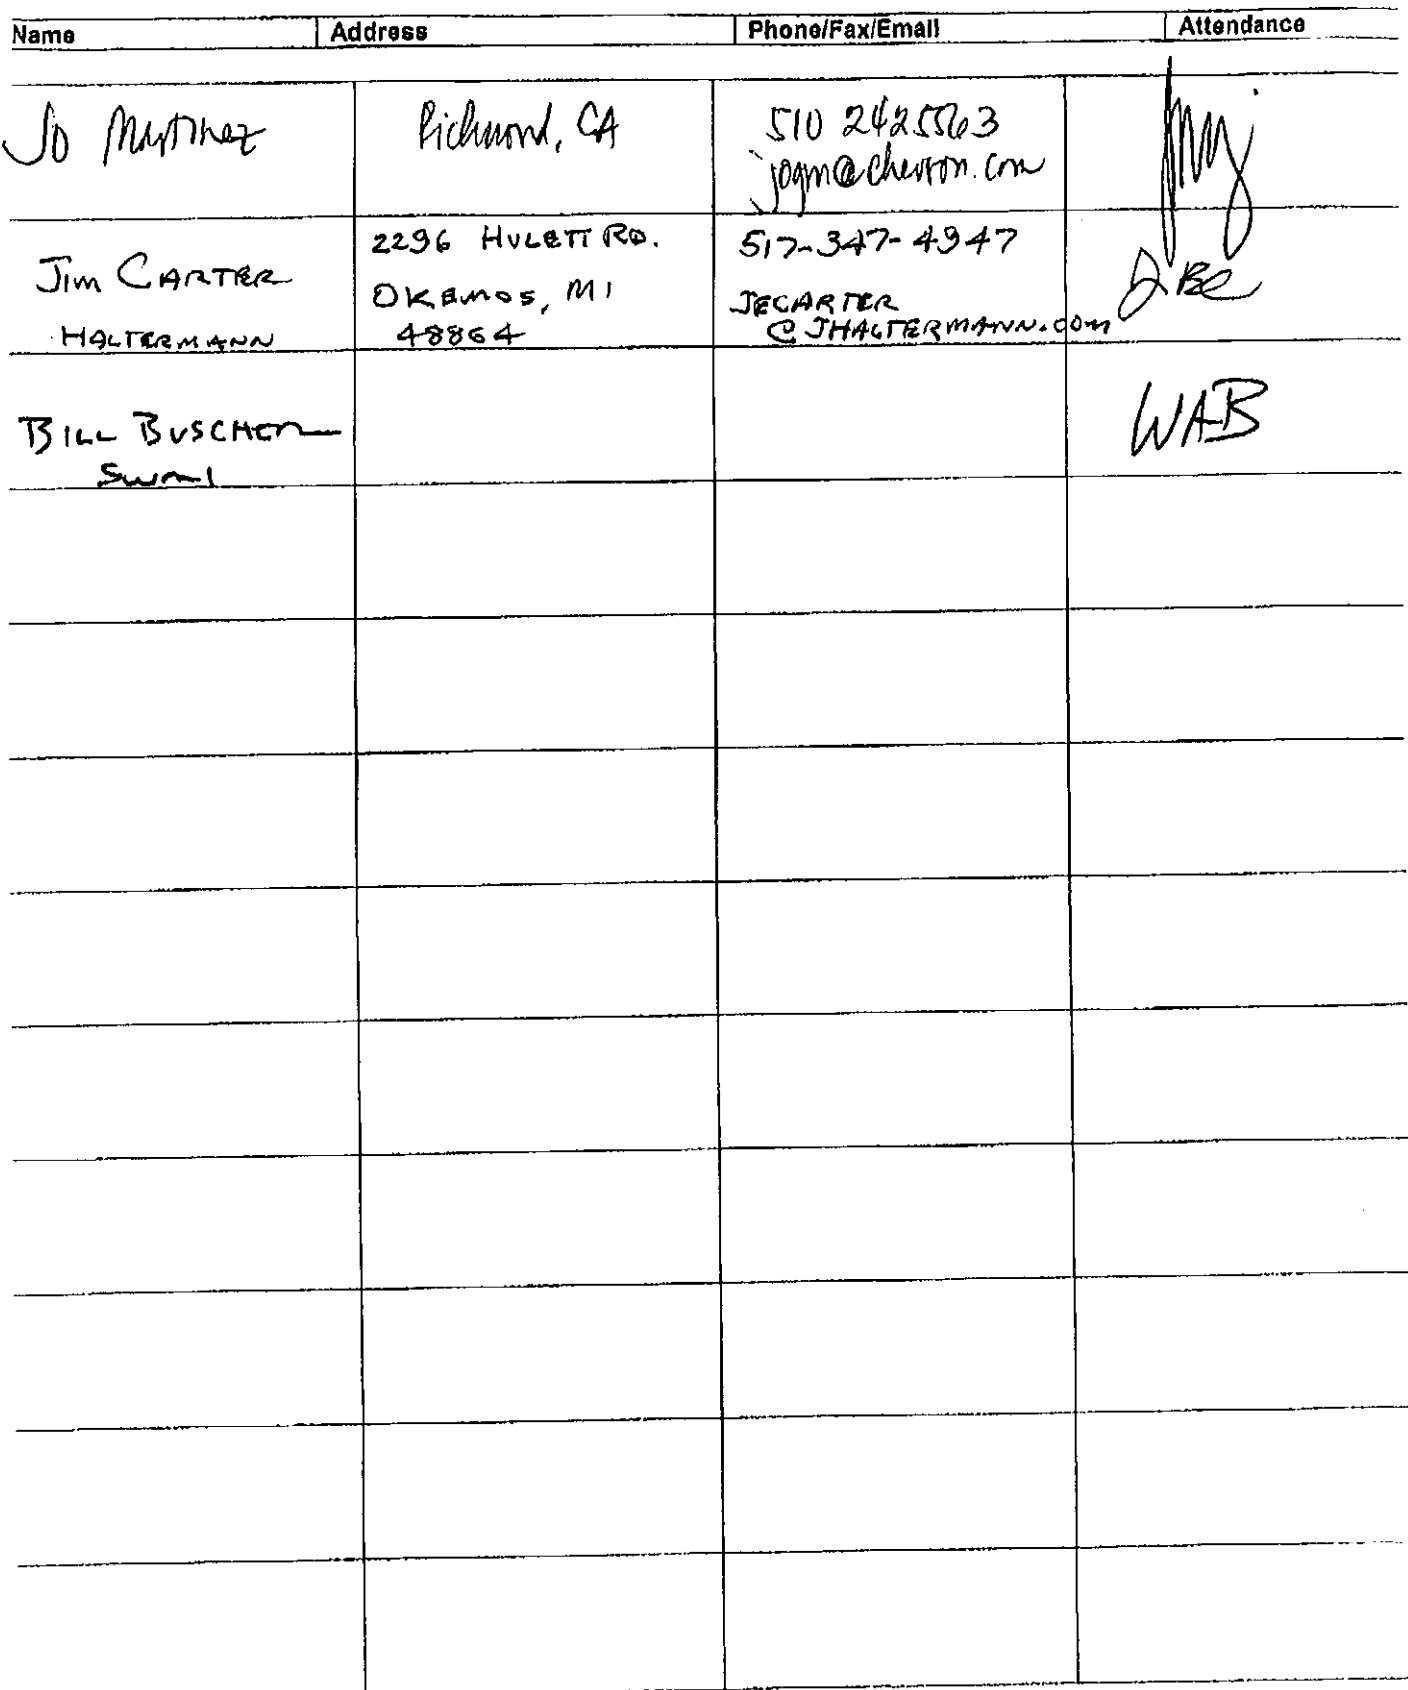 Name Address Phone/Fax/Email Attendance
Jo Martinez
Richmond, CA
510 2425563
jogm@chevron.com
Jim CARTER
HALTERMANN
2296 HULETT RD.
OKEMOS, MI
48864
517-347-4947
JECARTER
@JHALTERMANN.COM
BILL BUSCHER
SwRI
WAB